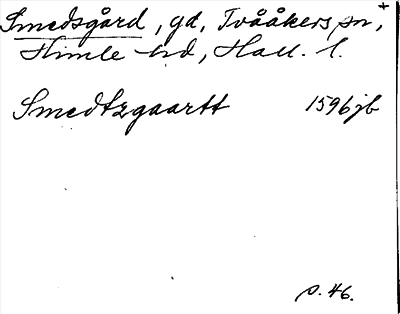 Smedsgård, gd, Tvååkers sn, +
Himle hd, Hall. l.
Smedtzgaartt 1596 jb
s. 46.